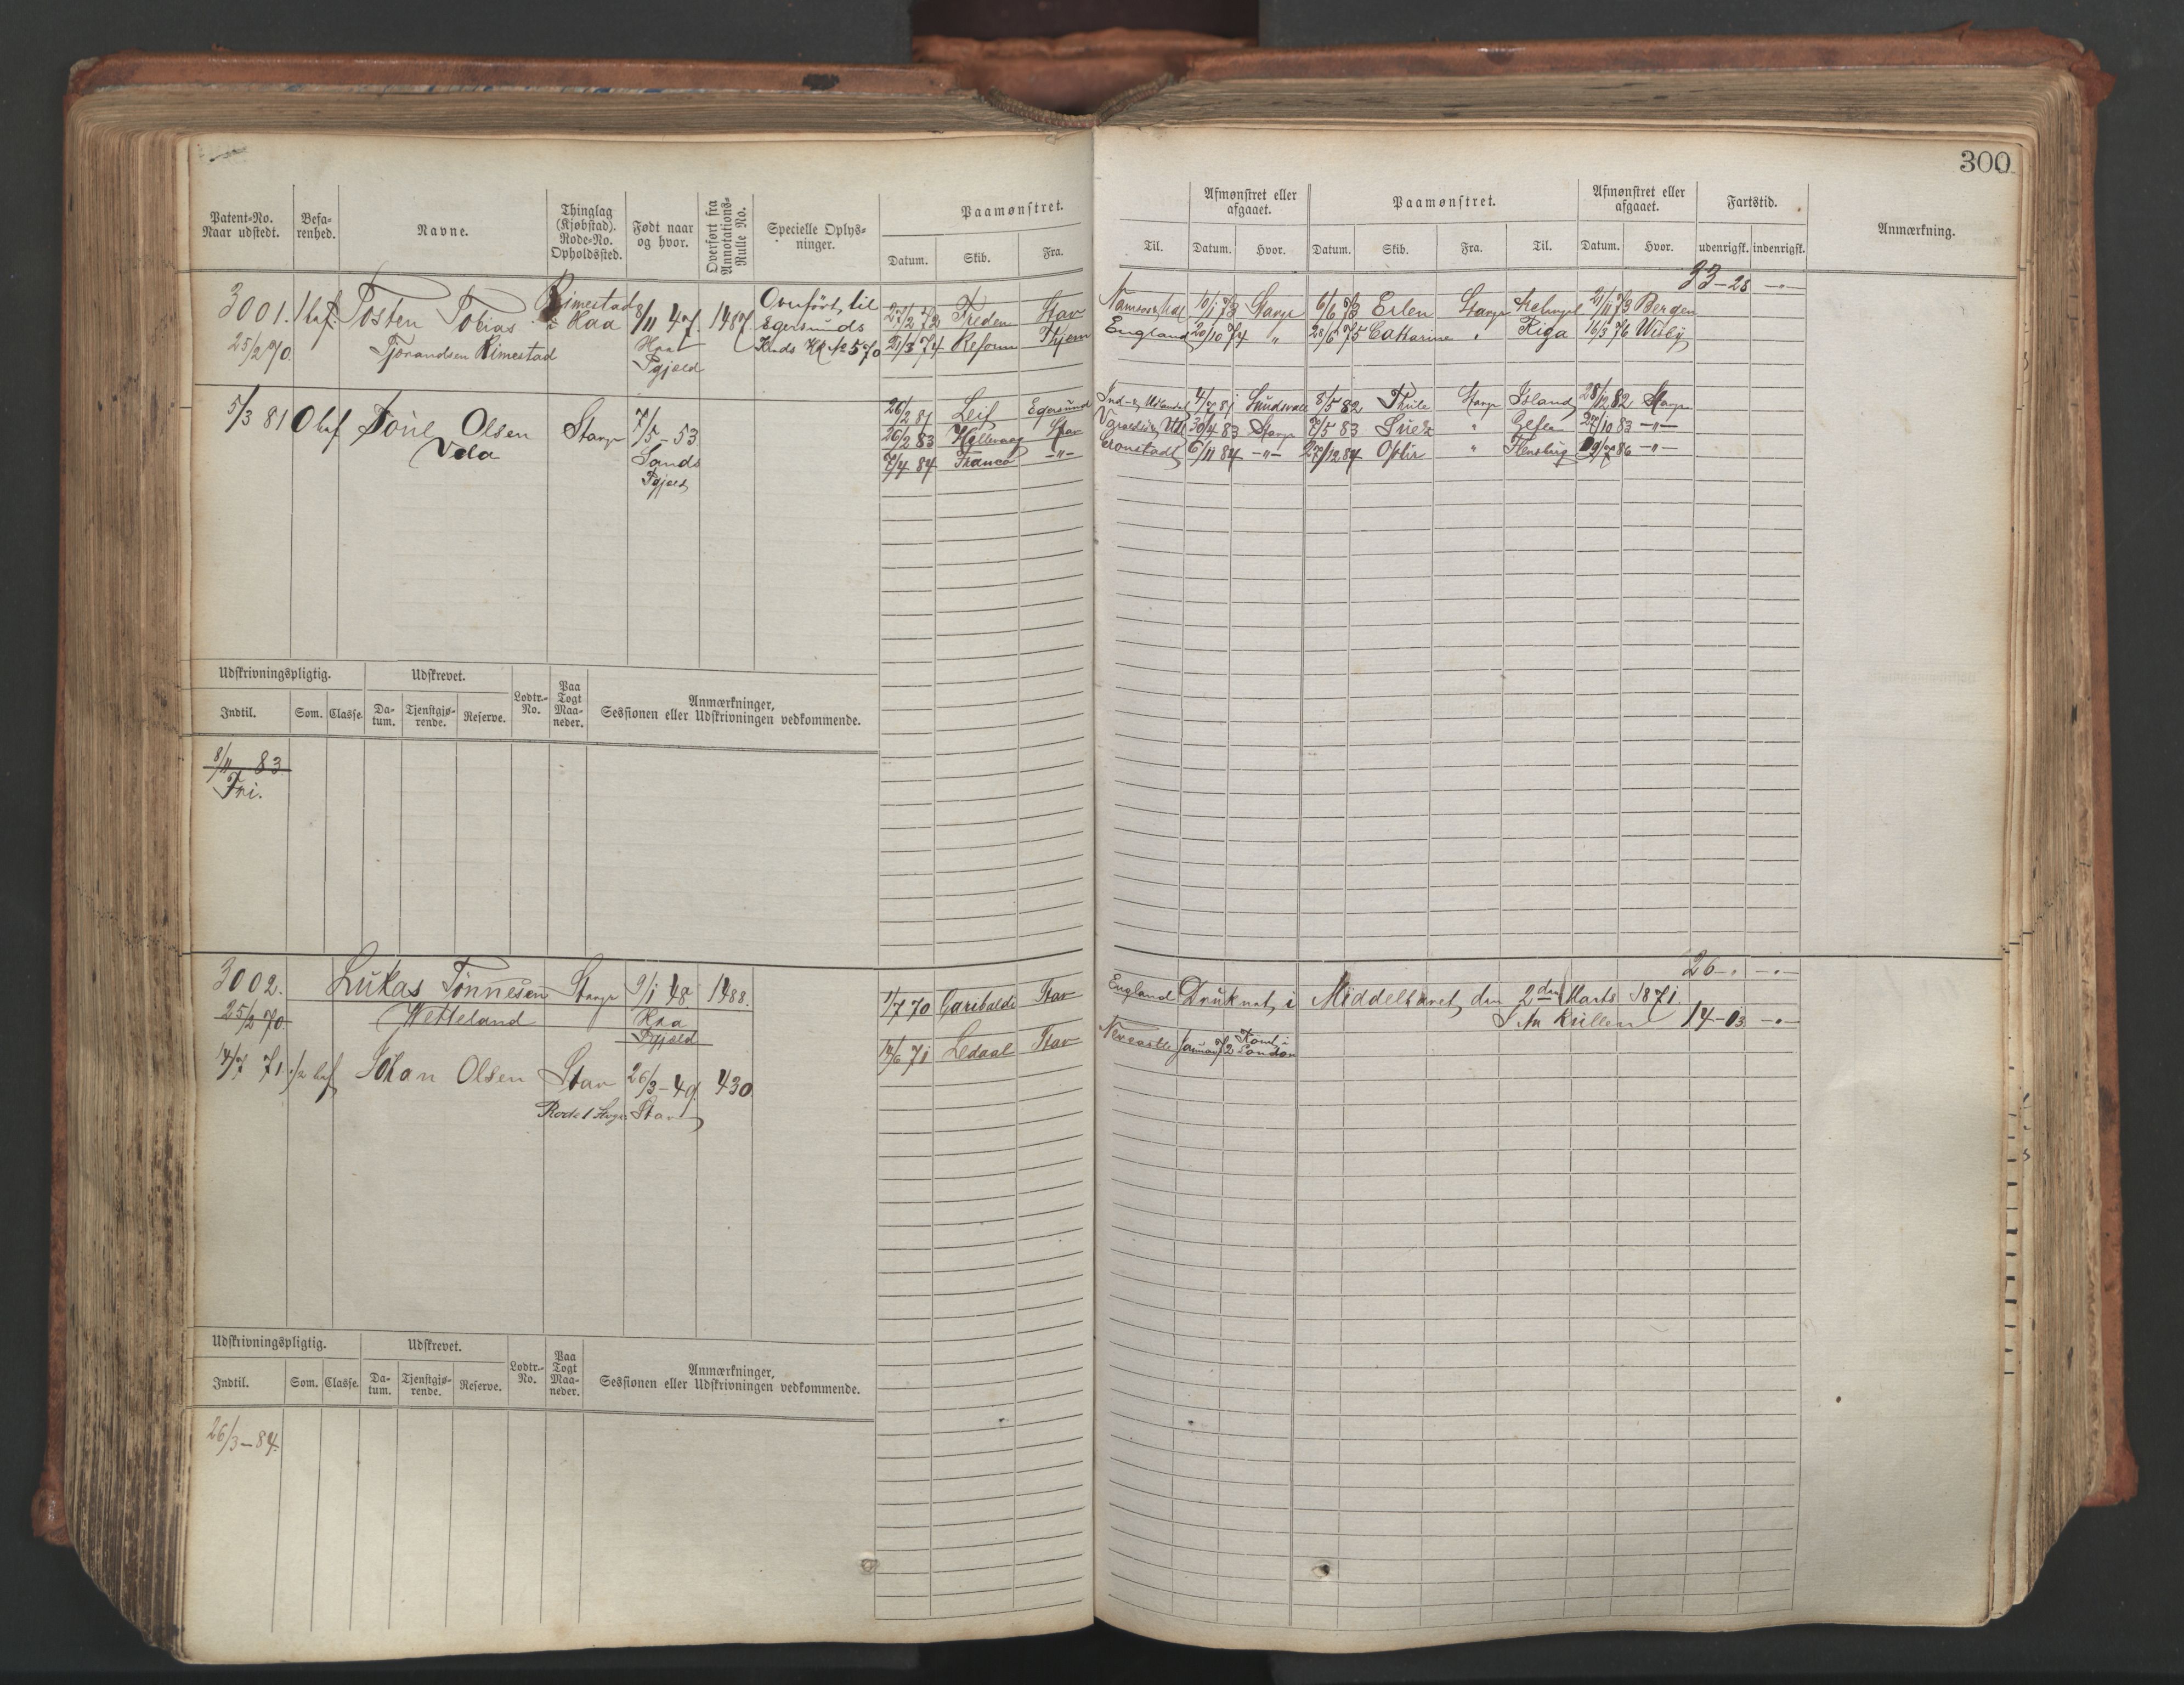 300
Patent-No. Naar udstedt.
Befarenhed.
Navne.
Thinglag (Kjøbstad). Rode-No. Opholdssted.
Født naar og hvor.
Overført fra Annotations-Rulle No.
Specielle Oplysninger.
Paamønstret.
Datum. Skib. Fra.
Til.
Afmønstret eller afgaaet.
Datum. Hvor.
Paamønstret.
Datum. Skib. Fra. Til.
Afmønstret eller afgaaet.
Datum. Hvor.
Fartstid.
udenrigsk. indenrigsk.
Anmærkning.
33-28 -"-
3001. 1 bef. Tosten Tobias Rimestad 8/11 47. 1487 Overført til 27/2 73 Freden Stav 10/1 73 Stavgr 6/6 73 Erlen Stavgr 21/11 73 Bergen
25/2 70. Tjorandsen Rimestad i Haa Haa Pgjeld Egersunds Kreds No 570 21/3 74 Reform England 20/10 74 " 28/6 75 Catharine " Riga 16/3 76 Wisby
5/3 81 0 bef Olsen Stavgr 7/5-53 26/2 81 Leif Egersund 4/7 81 Sundsvall 8/5 82 Thule Stavgr Island 28/12 82 Stavgr
Vela Sands Pgjeld 26/2 83 Stav 30/4 83 Stavgr 7/5 83 " Gefle 27/10 83 -"-
7/4 84 Franco -"- Cronstadt 6/11 84 -"- 27/12 84 Ophir " Flensburg 86 -"-
Udskrivningspligtig. Udskrevet. Lodtr.-No. Paa Togt Maaneder. Anmærkninger, Sessionen eller Udskrivningen vedkommende.
Indtil. Som. Classe. Datum. Tjenstgjørende. Reserve.
8/11 83
Fri.
26-" -"-
3002. Lukas Tønnesen Stavgr 9/1 48 1488. 1/7 70 Garibaldi Stav England Druknet i Middelhavet den 2den Marts 1871.
25/2 70 Wetteland Haa Pgjeld 14-03 -"-
14/7 71 1/2 bef Johan Olsen Stav 26/3-49. 430. 14/6 71 Ledaal Stav Newcastle Januar 72 Rømt i London
Rode 1 Stavgr Stav
Udskrivningspligtig. Udskrevet. Lodtr.-No. Paa Togt Maaneder. Anmærkninger, Sessionen eller Udskrivningen vedkommende.
Indtil. Som. Classe. Datum. Tjenstgjørende. Reserve.
26/3-84.